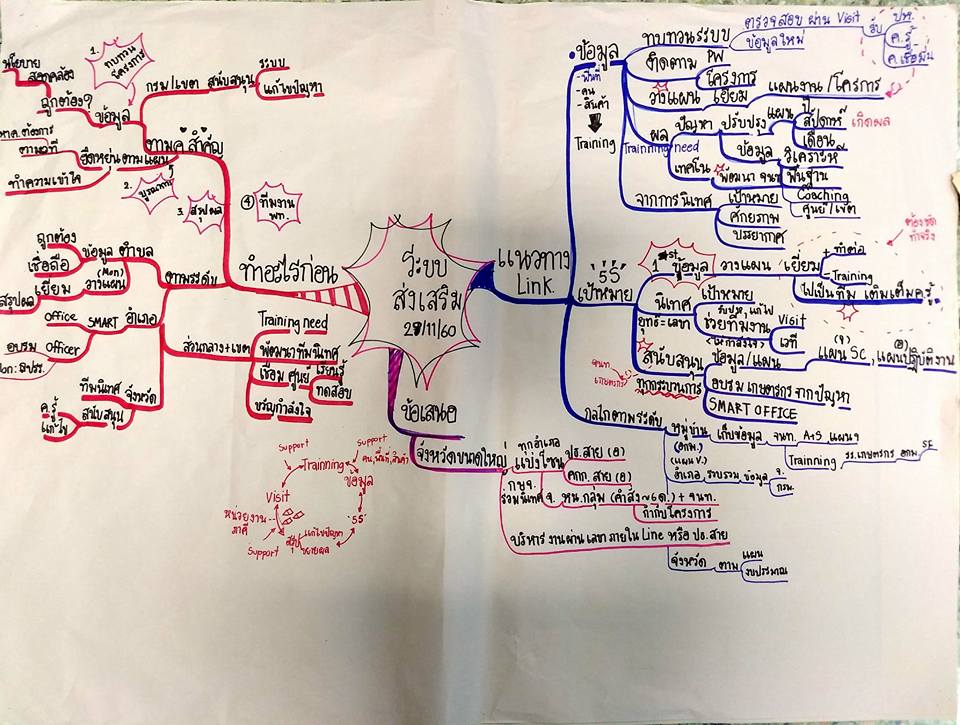 ระบบ
ส่งเสริม
28/11/60
ทำอะไรก่อน
ตามค.สำคัญ
1.
ทบทวน
โครงการ
นโยบาย
สอดคล้อง
ถูกต้อง?
ข้อมูล
กรม/เขต สนับสนุน
ระบบ
แก้ไขปัญหา
ตามเวที
ยืดหยุ่นตามแผน
ทำความเข้าใจ
2.
บูรณาการ
3. สรุปผล
④ ทีมงาน
พท.
ตามระดับ
ตำบล
ข้อมูล
ถูกต้อง
เชื่อถือ
(Mon)
วางแผน
เยี่ยม
สรุปผล
อำเภอ
SMART
Office
Officer
อบรม
จังหวัด
ทีมนิเทศ
สนับสนุน
ค.รู้
แก้ไข
ส่วนกลาง+เขต
Training need
พัฒนาทีมนิเทศ
เชื่อม ศูนย์
เรียนรู้
ทดสอบ
ขวัญกำลังใจ
Support
Support
คน,พื้นที่,สินค้า
Trainning
ข้อมูล
Visit
'55'
หน่วยงาน
ภาคี
สรุป
แก้ไขปัญหา
ขยายผล
Support
แนวทาง
Link.
ข้อมูล
- พื้นที่
- คน
- สินค้า
Training
ทบทวนระบบ
ตรวจสอบ ผ่าน Visit
ข้อมูลใหม่
รับ
ปห.
ค.รู้
ค.เชื่อมั่น
ติดตาม
PW
โครงการ
วางแผน
เยี่ยม
แผนงาน/โครงการ
ผล
ปัญหา
ปรับปรุง
แผน
ปี
สัปดาห์
เดือน
เกิดผล
Trainning need
เทคโน
ข้อมูล
วิเคราะห์
พื้นฐาน
พัฒนา จนท.
Coaching
ศูนย์/เขต
จากการนิเทศ
เป้าหมาย
ศักยภาพ
บรรยากาศ
'55'
เป้าหมาย
1st ข้อมูล
วางแผน
เยี่ยม
+ ทำต่อ
+ Training
ไปเป็นทีม เติมเต็มครู้
ต้องชัด
ทำจริง
นิเทศ
เป้าหมาย
รับปห,แก้ไข
ช่วยทีมงาน
Visit
เวที
สนับสนุน
ทุกกระบวนการ
จนท
เกษตรกร
ข้อมูล/แผน
แผน SC, แผนปฏิบัติงาน
อบรม เกษตรกร จากปัญหา
SMART OFFICE
กลไกตามระดับ
หมู่บ้าน
(อกม.)
เก็บข้อมูล
จนท. A+S แผนฯ
Trainning
รร.เกษตรกร อกม
SF
อำเภอ, รวบรวม, ข้อมูล
จ.
กรม.
จังหวัด ตาม
แผน
งบประมาณ
ข้อเสนอ
จังหวัดขนาดใหญ่
ทุกอำเภอ
แบ่งโซน
ปธ.สาย (อ)
คกก. สาย (อ)
กษจ.
ร่วมนิเทศ
จ. หน.กลุ่ม (คำสั่ง ~6 ด.) + จนท.
กำกับโครงการ
บริหารงานผ่าน เลขา ภายใน Line หรือ ปธ.สาย